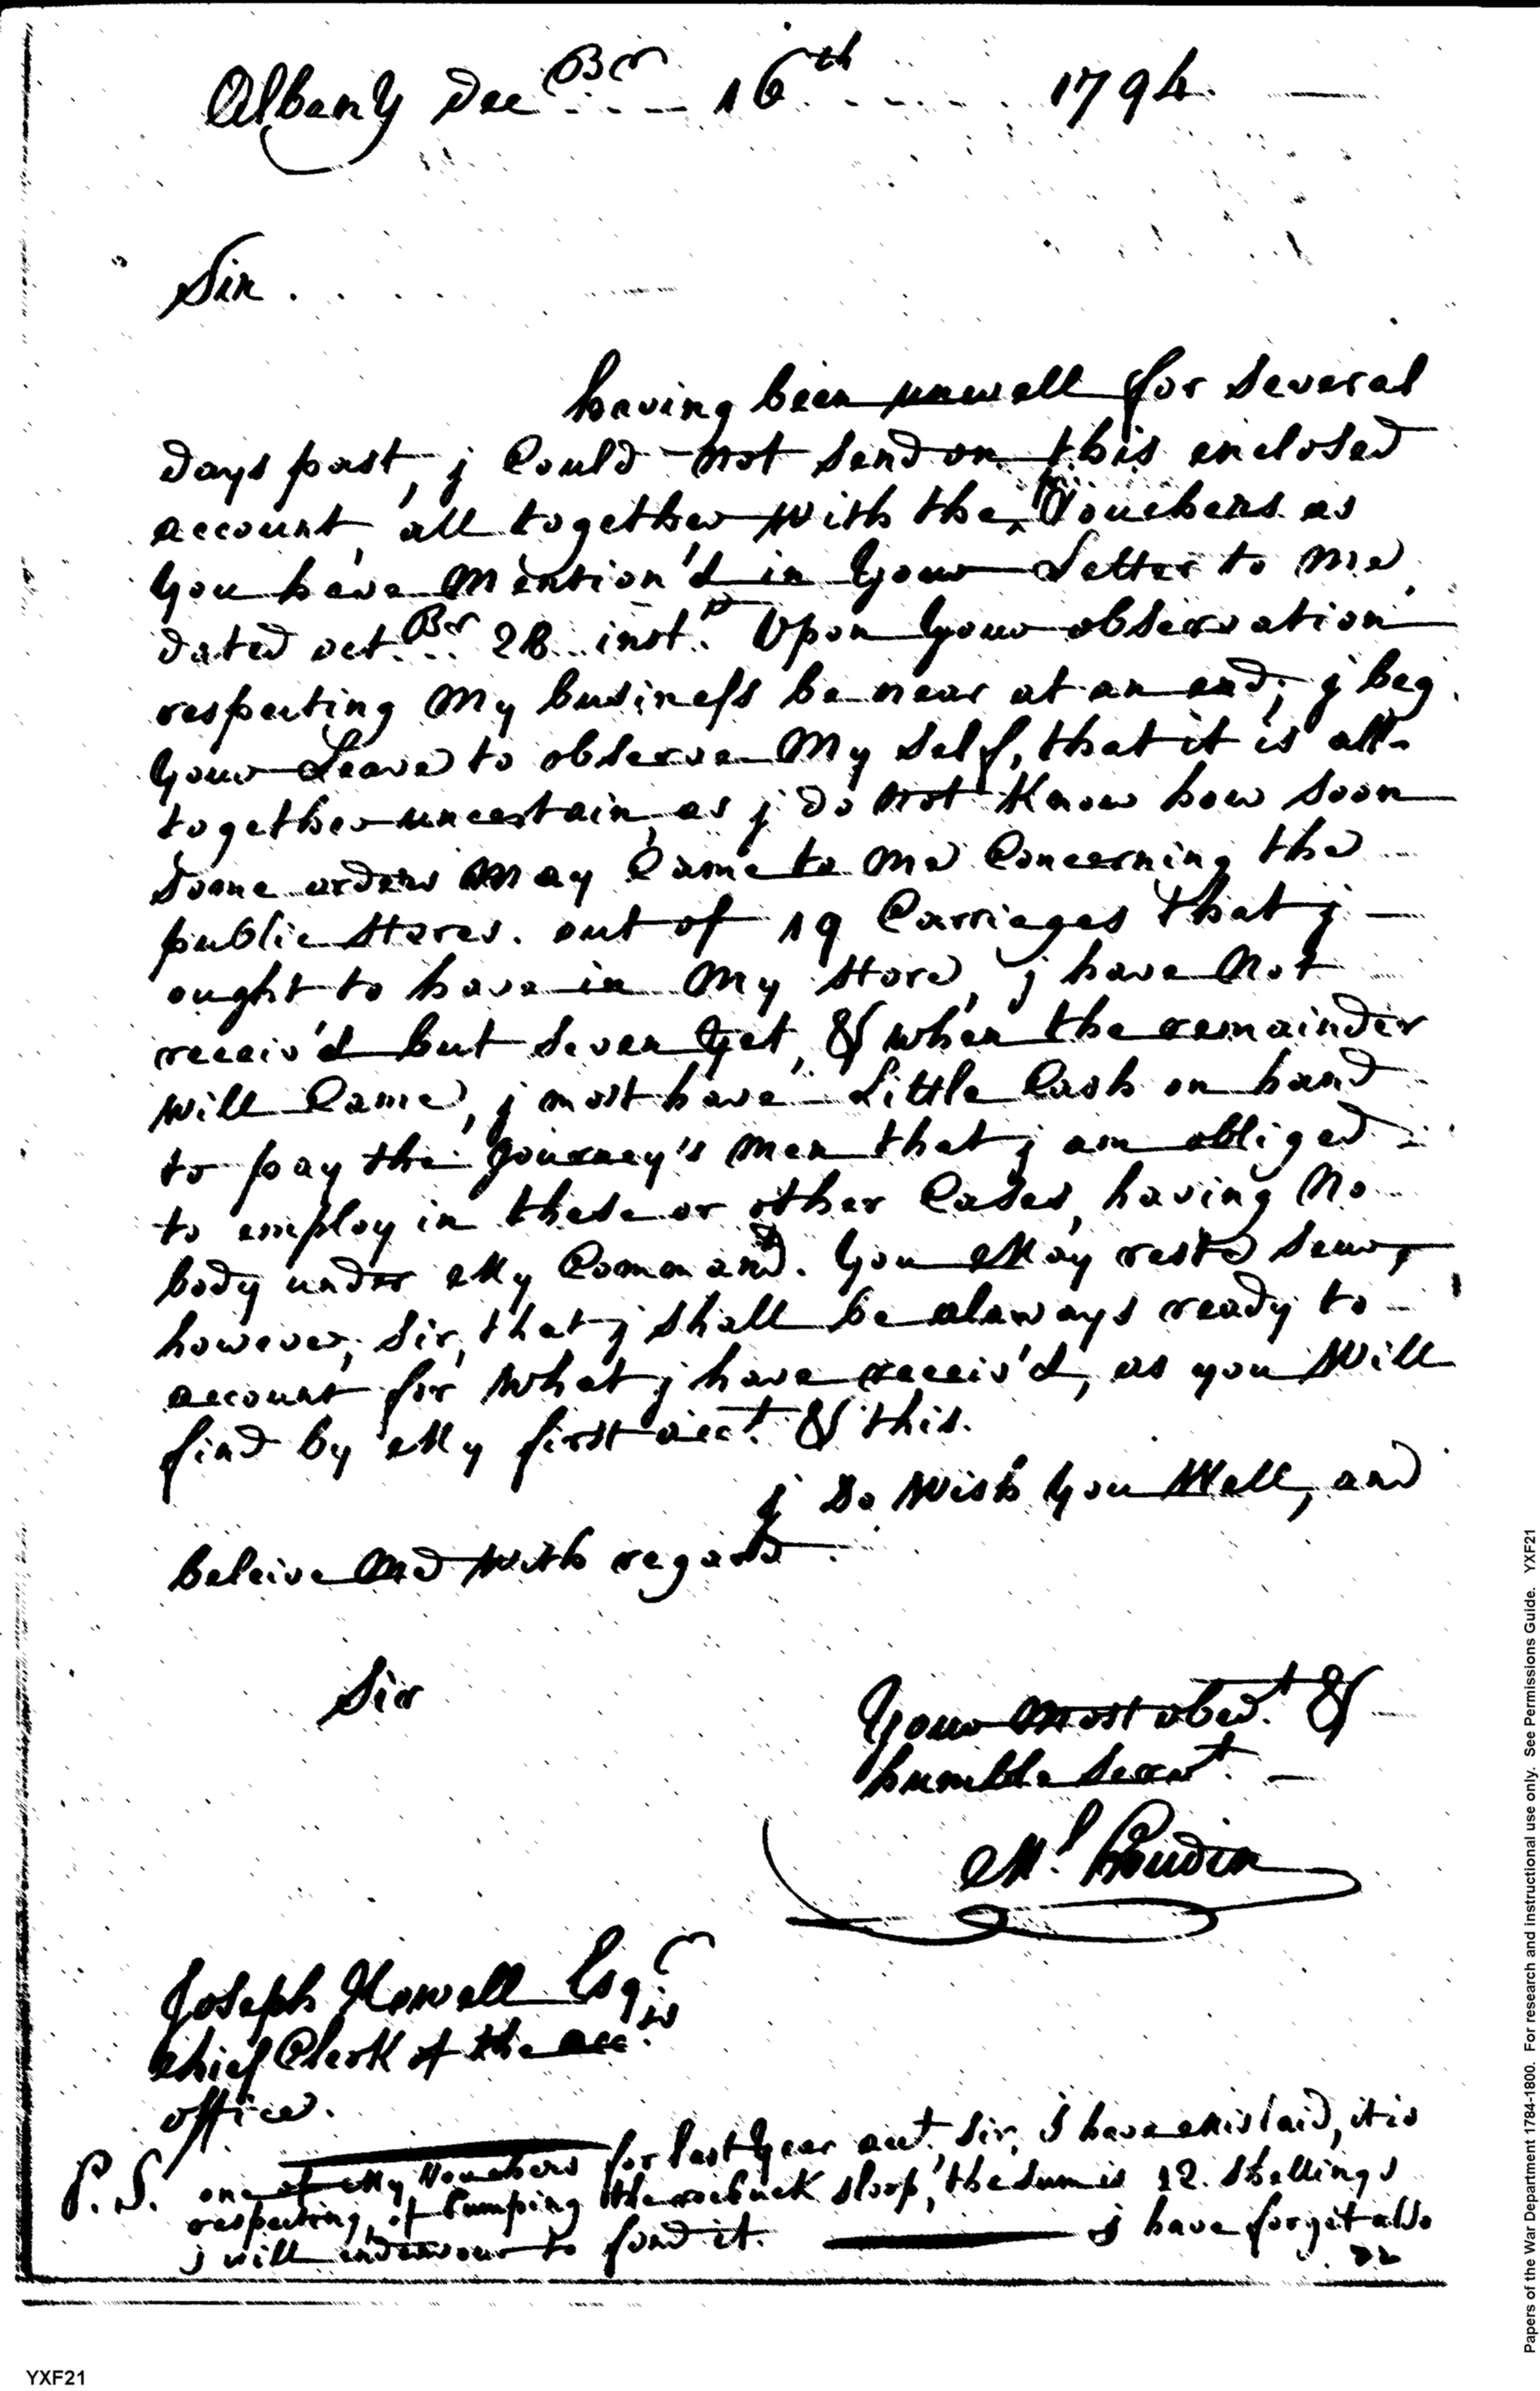 Albany Dec.Br 16th 1794.
Sir.
having been unwell for several
days past, j Could not send on this enclosed
account, all together With the Vouchers as
you have Mention'd in your Letter to Me,
dated oct.Br 28 inst. Upon your observation
respecting My business be near at an end; j beg
your Leave to observe My self, that it is all-
together uncertain, as j do not Know how soon
some orders May Come to Me Concerning the
public Stores. out of 19 Carriages that j
ought to have in My store, j have Not
receiv'd but seven yet, & when the remainder
Will Come, j most have Little Cash on hand
to pay the Journey's men that j am obliged
to employ in these or other Cases, having No
body under My Command. you May reste seur,
however, Sir, that j shall be alaways ready to
account for What j have receiv'd, as you Will
find by My first acct. & this.
j Do Wish you Well, and
beleive Me With regard
Sir
your Most obedt. &
humble Servt.
Ml. Houdin
Joseph Howell Esqr
Chief Clerk of the accts.
office.
P.S. one of My Vouchers for last year acct. Sir, I have Mislaid, it is
respecting of Pumping the roebuck sloop, the sum is 12. Shellings
j will endeavour to find it. j have forgit also